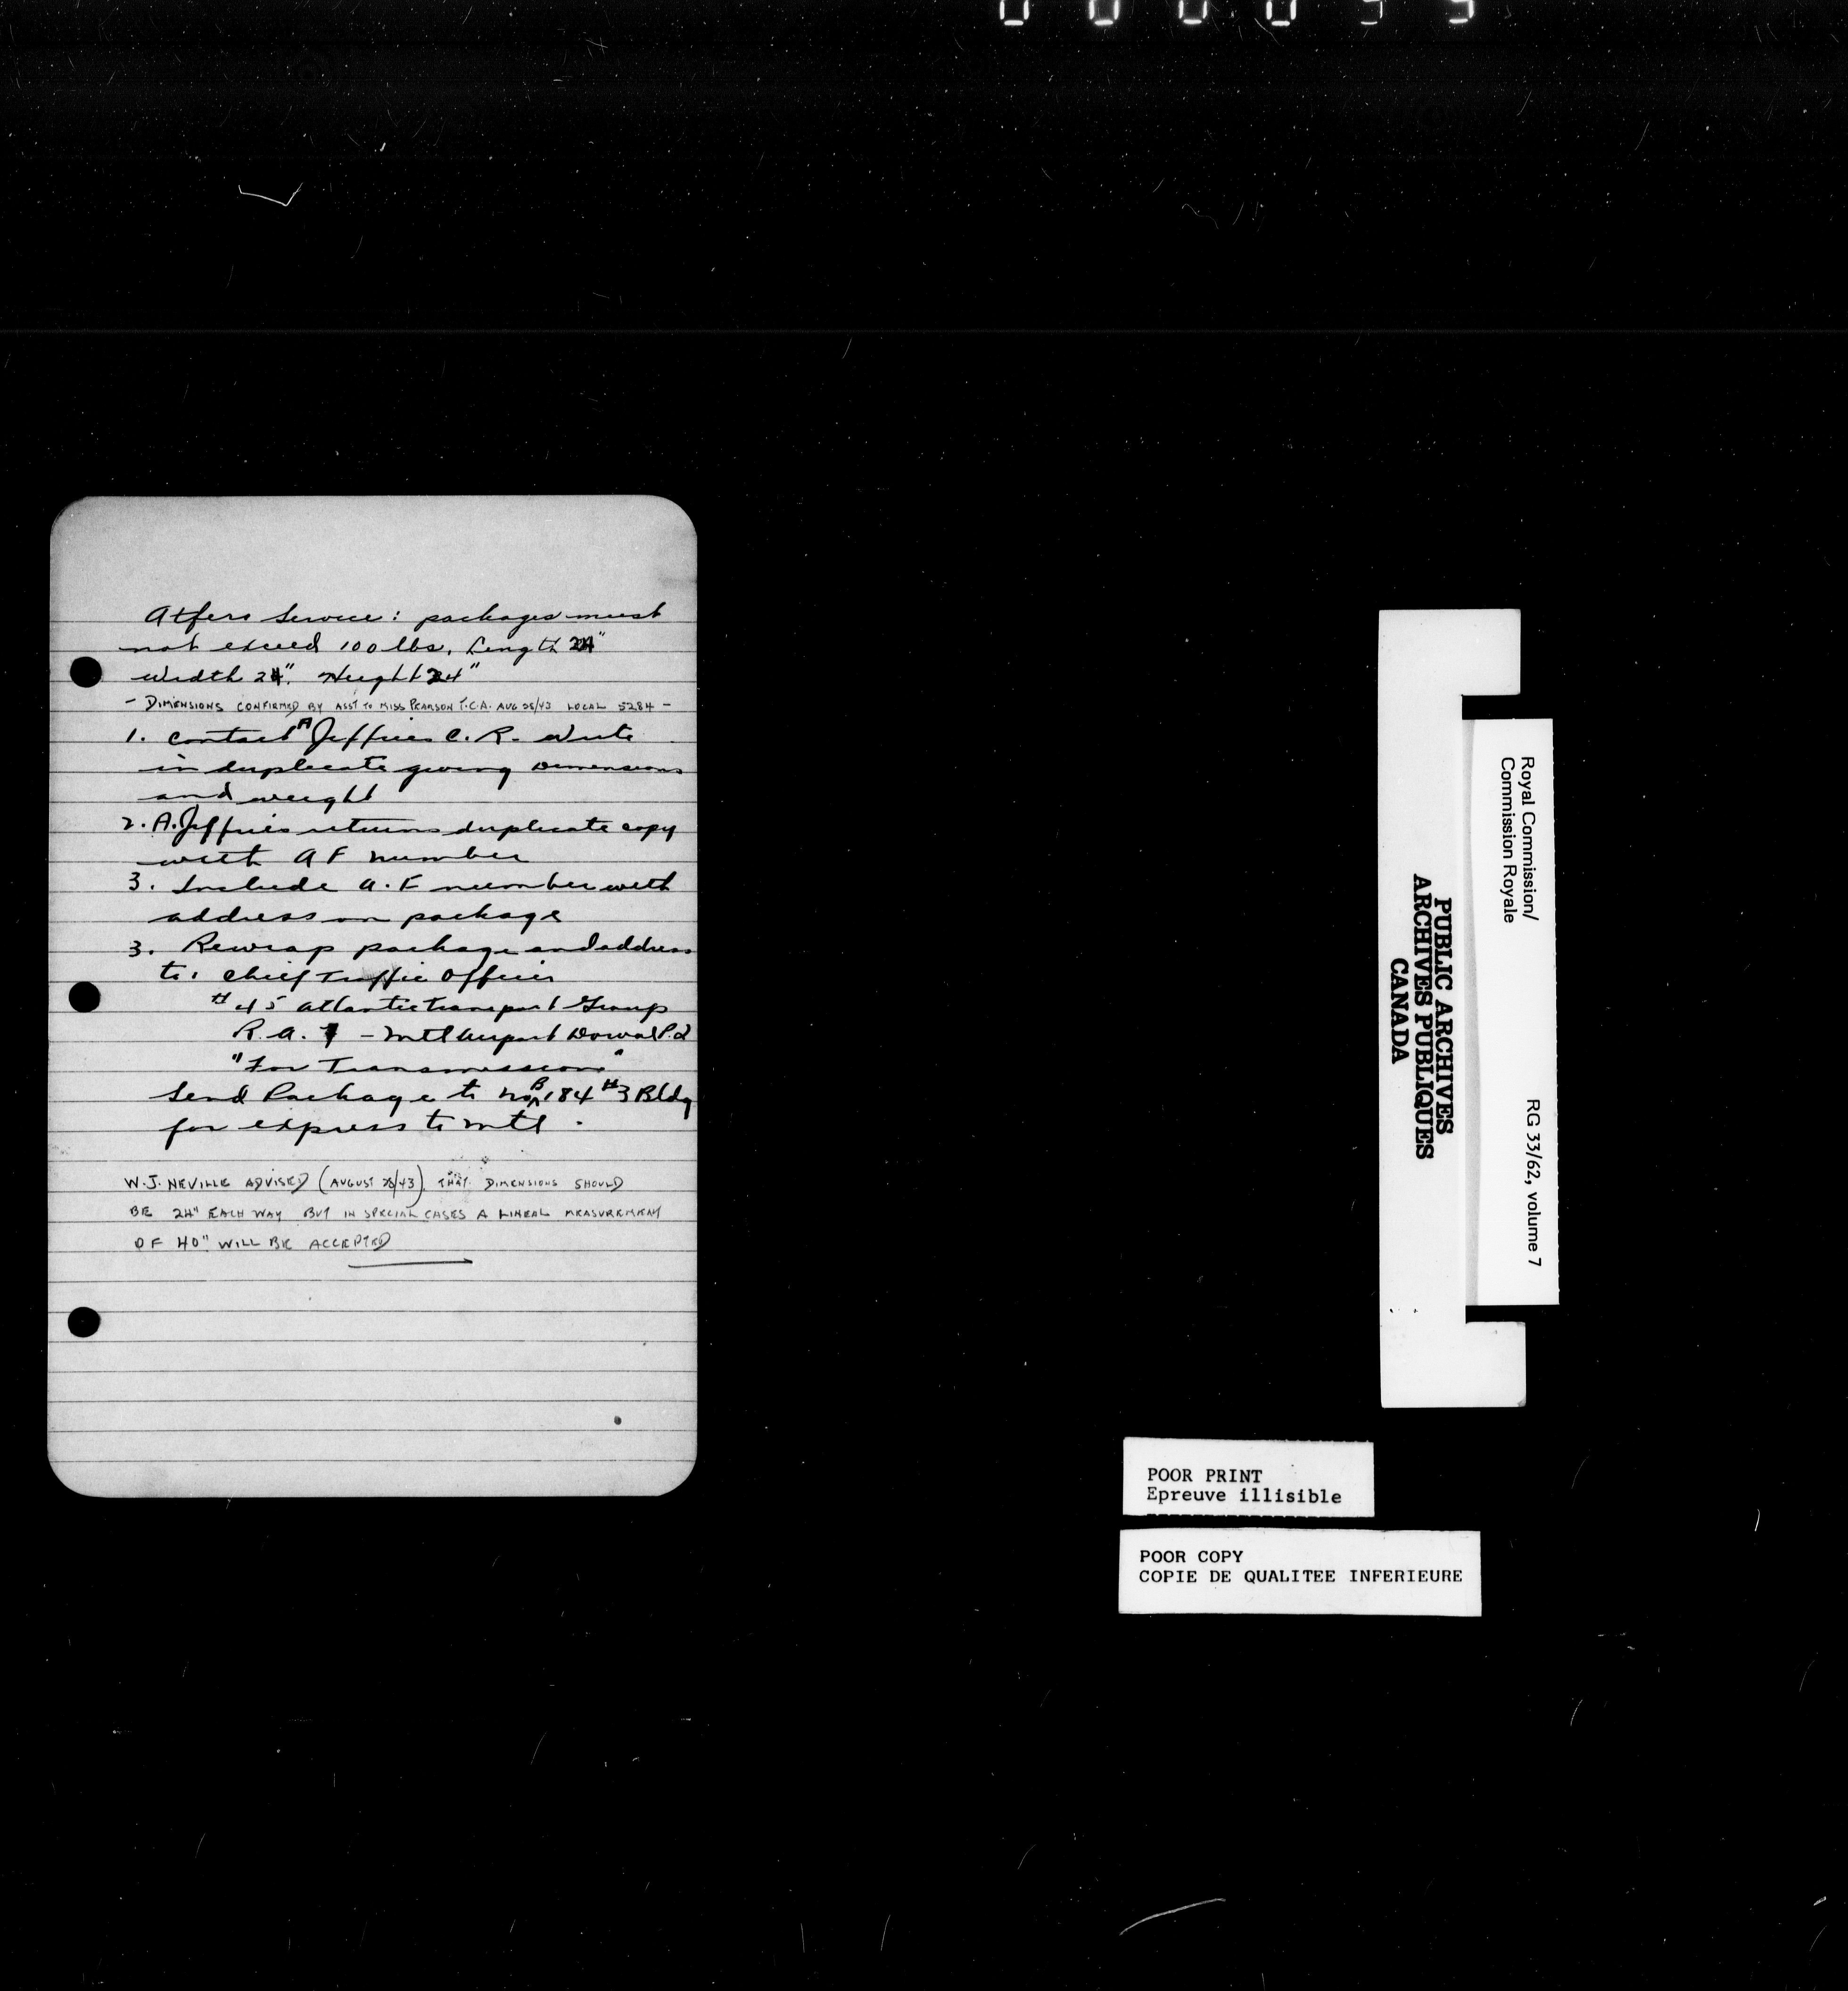 Atfero Service: packages must
not exceed 100 lbs. Length 24"
Width 24". Height 24"
- DIMENSIONS CONFIRMED BY ASST TO MISS PEARSON T.C.A. AUG 28/43 LOCAL 5284 -
1. Contact A Jeffries C. R. Write
in duplicate giving Dimensions
and weight
2. A. Jeffries returns duplicate copy
with AF number
3. Include A.F number with
address on package
3. Rewrap package and address
to: Chief Traffic Officer
#45 Atlantic transport Group
R.A. - Mtl Airport Dorval P.Q
"For Transmission"
Send Package to B 184 #3 Bldg
for express to Mtl.
W.J. NEVILLE ADVISED (AUGUST 28/43) THAT DIMENSIONS SHOULD
BE 24" EACH WAY BUT IN SPECIAL CASES A LINEAL MEASUREMENT
OF 40" WILL BE ACCEPTED
Royal Commission/
Commission Royale
RG 33/62, volume 7
PUBLIC ARCHIVES
ARCHIVES PUBLIQUES
CANADA
POOR PRINT
Epreuve illisible
POOR COPY
COPIE DE QUALITEE INFERIEURE